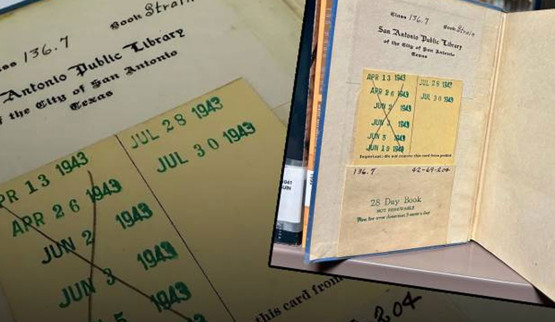 Class 136.7 Book Strain
San Antonio Public Library
of the City of San Antonio
Texas
APR 13 1943
APR 26 1943
JUN 2 1943
JUN 3 1943
JUN 5 1943
JUN 19 1943
JUL 28 1943
JUL 30 1943
Important: do not remove this card from pocket
136.7 42-69-204
28 Day Book
NOT RENEWABLE
Fine for over detention 3 cents a day
ass 136.7
Book Strain
Antonio Public Library
f the City of San Antonio
Texas
PR 13 1943
APR 26 1943
JUN 2 1943
JUN 3 1943
5 1943
JUL 28 1943
JUL 30 1943
this card from
204